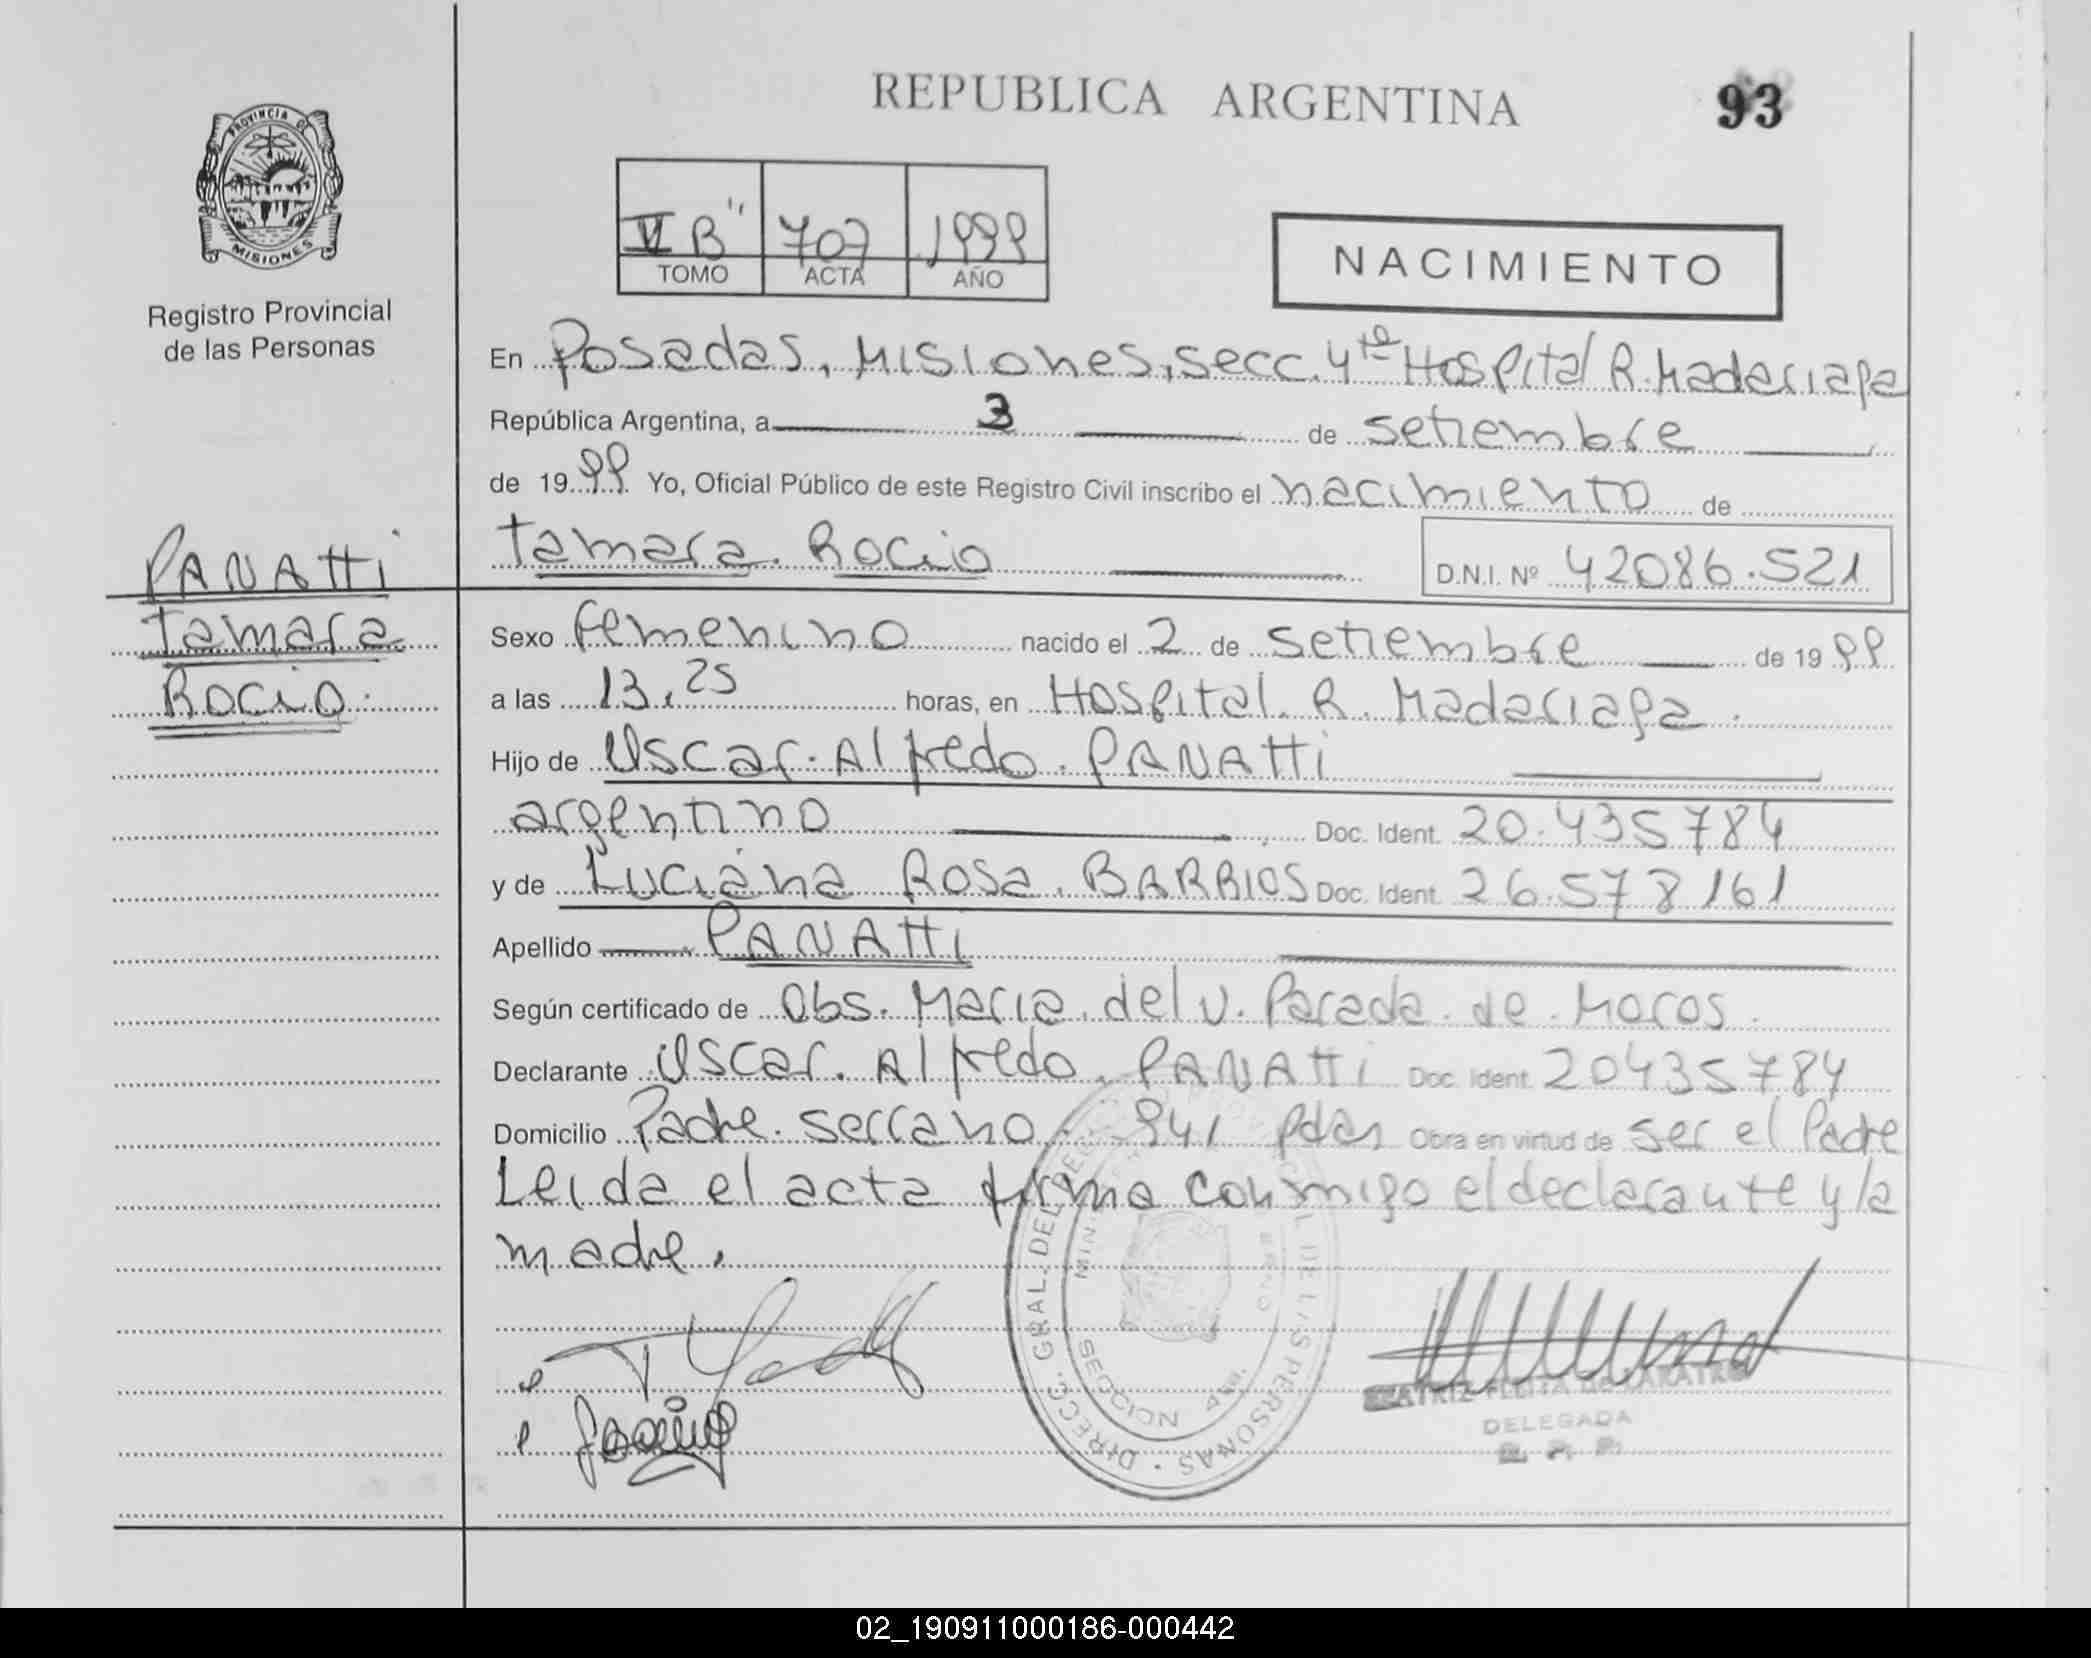 REPUBLICA ARGENTINA
93
PROVINCIA DE
MISIONES
Registro Provincial
de las Personas
VI B" 707 1999
TOMO ACTA AÑO
NACIMIENTO
En Posadas, Misiones, secc. 4ta Hospital R. Madariaga
República Argentina, a 3 de setiembre
de 1999 Yo, Oficial Público de este Registro Civil inscribo el nacimiento de
Tamara Rocio
D.N.I. Nº 42086.521
PANATTi
Tamara
Rocio.
Sexo Femenino nacido el 2 de setiembre de 1999
a las 13,25 horas, en Hospital R. Madariaga.
Hijo de Oscar Alfredo PANATTi
argentino Doc. Ident. 20.435784
y de Luciana Rosa BARRIOS Doc. Ident. 26.578161
Apellido PANATTi
Según certificado de Obs. Maria del V. Parada de Moros.
Declarante Oscar Alfredo PANATTi Doc. Ident. 20435784
Domicilio Padre Serrano 941 Pdas Obra en virtud de ser el Padre
Leida el acta firma conmigo el declarante y la
madre.
DIRECC. GRAL. DEL REG. PROVINCIAL DE LAS PERSONAS
SECCION 4ta.
BEATRIZ
DELEGADA
R. P. P.
02_190911000186-000442